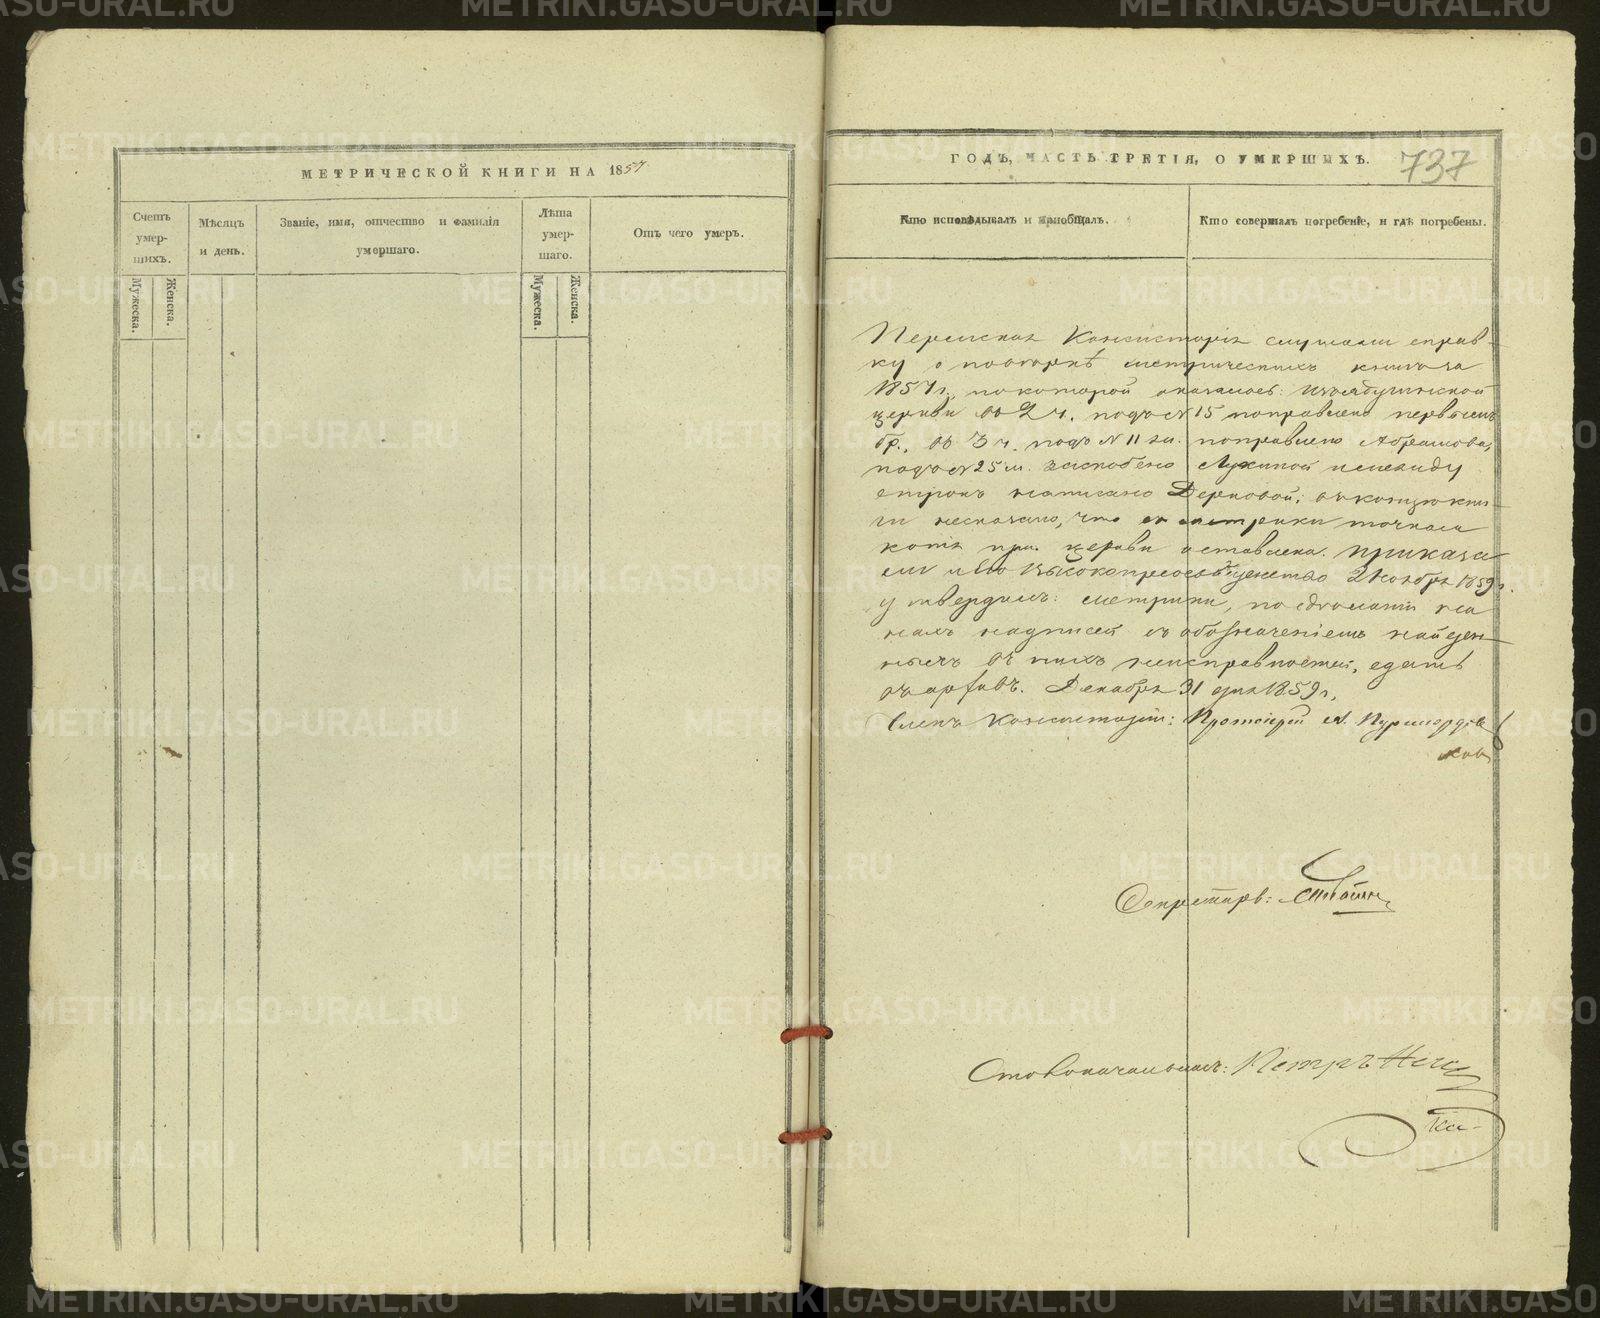 МЕТРИЧЕСКОЙ КНИГИ НА 1857
Счетъ умершихъ.
Мужеска.
Женска.
Мѣсяцъ и день.
Званіе, имя, отчество и фамилія умершаго.
Лѣта умершаго.
Мужеска.
Женска.
Отъ чего умеръ.
ГОДЪ, ЧАСТЬ ТРЕТІЯ, О УМЕРШИХЪ.
737
Кто исповѣдывалъ и пріобщалъ.
Кто совершалъ погребеніе, и гдѣ погребены.
Пермская Консисторія слушали справ-
ку о повѣркѣ метрическихъ книгъ за
1857 г., по которой оказалось:
церкви въ 2 ч. подъ № 15 поправлено первымъ
бр., въ 3 ч. подъ № 11 поправлено Абрамова,
подъ № 25 м. выскоблено
строкъ написано въ концѣ кни-
ги не сказано, что съ метрики точная
копія при церкви оставлена. Приказа-
ли и Его Высокопреосвященство 2 Ноября 1859 г.
утвердилъ: метрики, по сдѣланіи на
нихъ надписей съ обозначеніемъ найден-
ныхъ въ нихъ неисправностей, сдать
въ архивъ. Декабря 31 дня 1859 г.
Членъ Консисторіи: Протоіерей
Секретарь:
Столоначальникъ: Петръ
METRIKI.GASO-URAL.RU